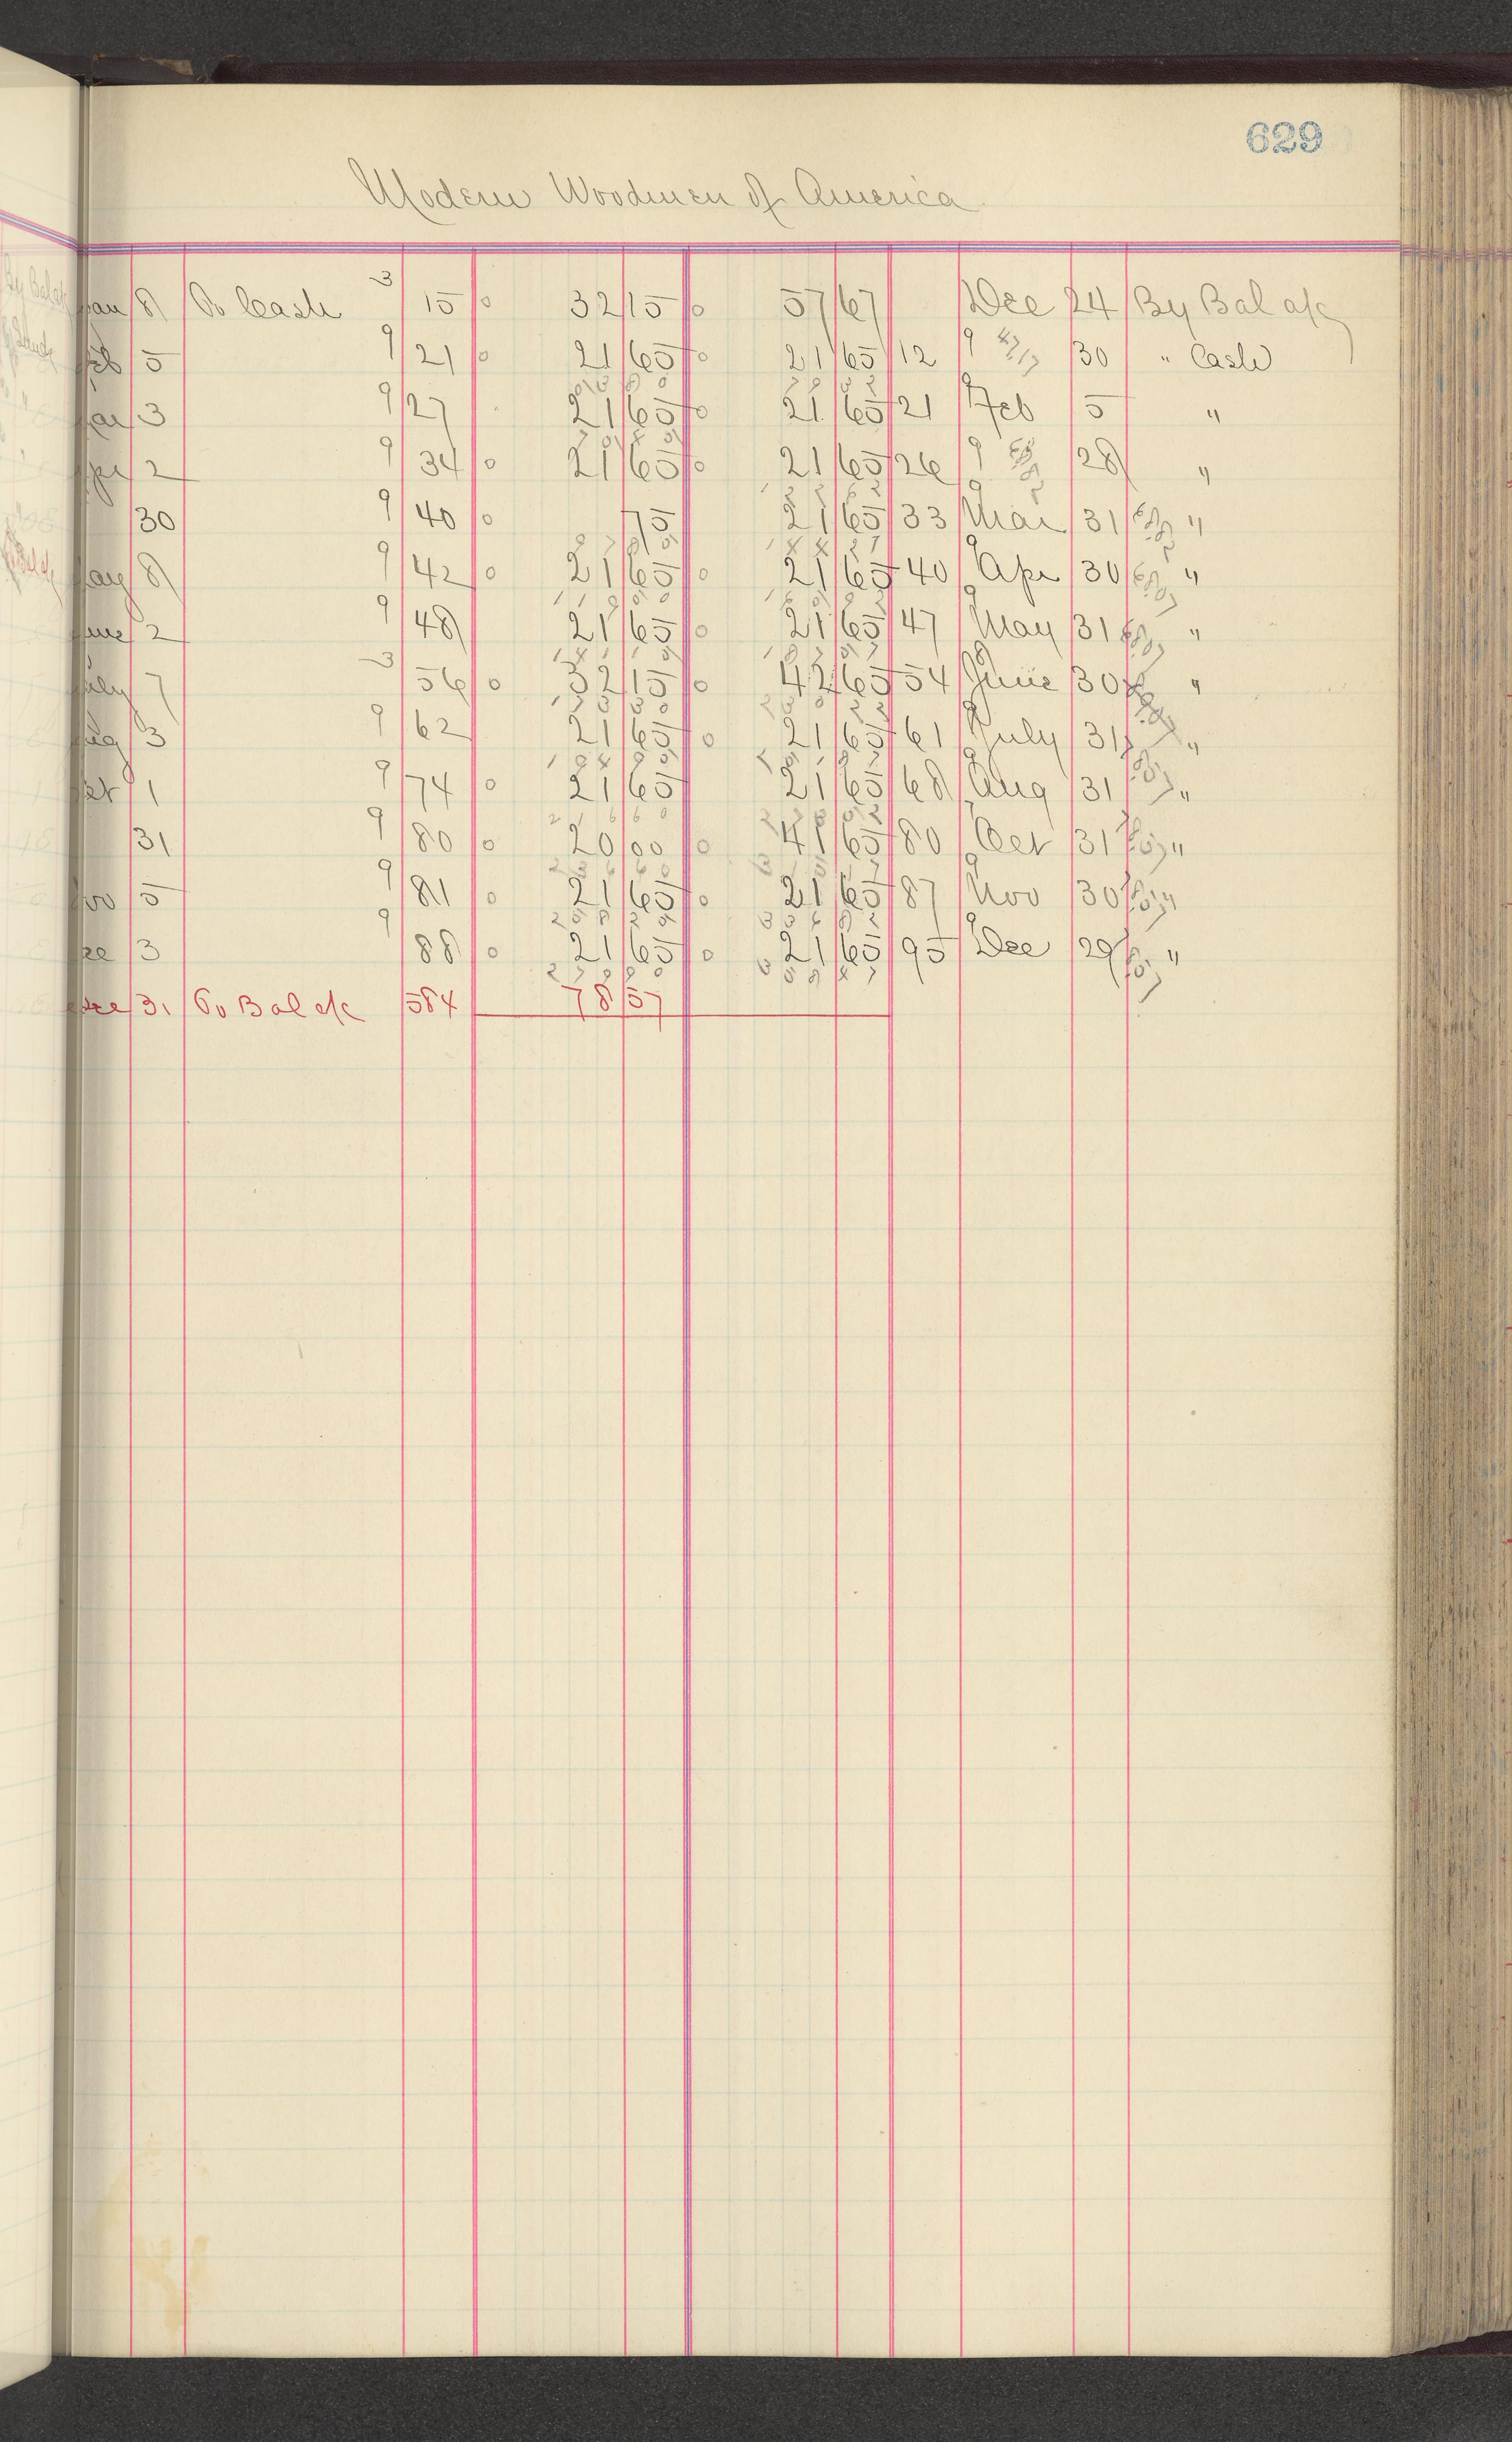 629
Modern Woodmen of America
Jan 8 To Cash 3 15 32 15 57 67 Dec 24 By Bal a/c
Feb 5 9 21 21 65 21 65 12 9 30 " Cash
Mar 3 9 27 21 65 21 65 21 9 Feb 5 "
Apr 2 9 34 21 65 21 65 26 9 28 "
30 9 40 75 21 65 33 9 Mar 31 "
May 8 9 42 21 65 21 65 40 9 Apr 30 "
June 2 9 48 21 65 21 65 47 9 May 31 "
July 7 3 56 32 15 42 65 54 June 30 "
Aug 3 9 62 21 65 21 65 61 9 July 31 "
Oct 1 9 74 21 65 21 65 68 9 Aug 31 "
31 9 80 20 00 41 65 80 Oct 31 "
Nov 5 9 81 21 65 21 65 87 9 Nov 30 "
Dec 3 9 88 21 65 21 65 95 9 Dec 29 "
Dec 31 To Bal a/c 584 78 57